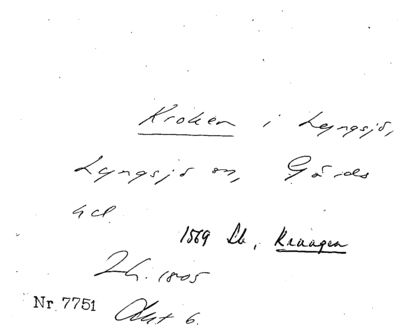 Kroken i Lyngsjö,
Lyngsjö sn, Gärds
hd.
1569 Lb, Kraagen
Lh. 1805
Nr 7751 Akt 6.